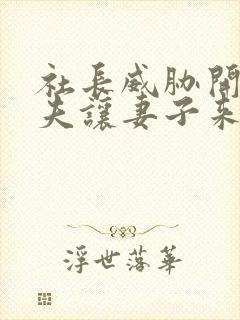 社長威胁開
夫讓妻子来
浮世落華